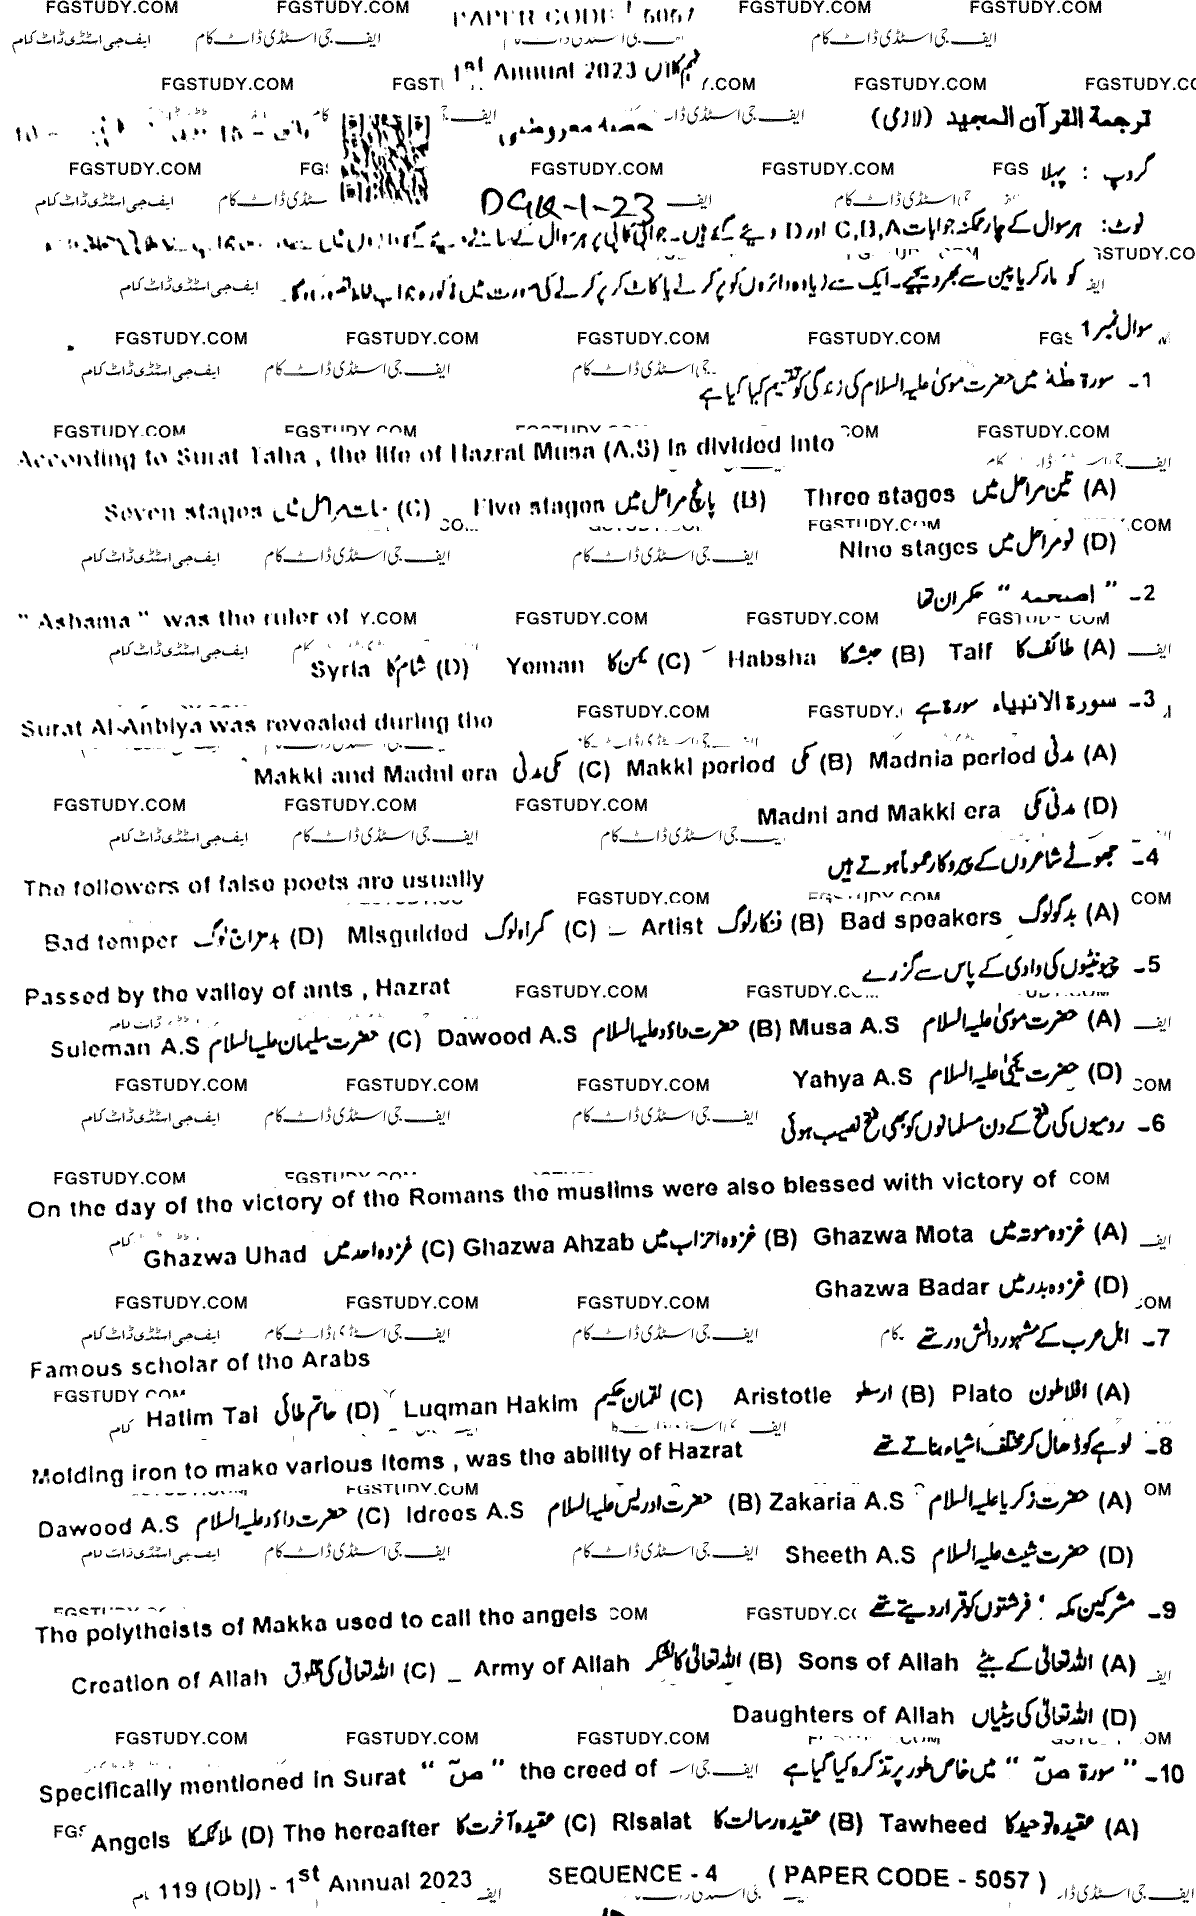 FGSTUDY.COM FGSTUDY.COM FGSTUDY.COM FGSTUDY.COM
PAPER CODE 5057
ایف جی اسٹڈی ڈاٹ کام ایف جی اسٹڈی ڈاٹ کام ایف جی اسٹڈی ڈاٹ کام
1st Annual 2023
FGSTUDY.COM FGSTUDY.COM
ترجمۃ القرآن المجید (لازمی) حصہ معروضی
FGSTUDY.COM FGSTUDY.COM FGSTUDY.COM
گروپ : پہلا
DGK-1-23
نوٹ: ہر سوال کے چار ممکنہ جوابات A,B,C اور D دیئے گئے ہیں۔ جوابی کاپی پر ہر سوال کے سامنے دیئے گئے
کو مارکر یا پین سے بھر دیجیے۔ ایک سے زیادہ دائروں کو پُر کرنے یا کاٹ کر پُر کرنے کی صورت میں مذکورہ جواب غلط تصور ہوگا۔
سوال نمبر 1
FGSTUDY.COM FGSTUDY.COM FGSTUDY.COM FGSTUDY.COM
1۔ سورۃ طٰہٰ میں حضرت موسیٰ علیہ السلام کی زندگی کو تقسیم کیا گیا ہے
According to Surat Taha , the life of Hazrat Musa (A.S) is divided into
(A) تین مراحل میں Three stages (B) پانچ مراحل میں Five stages (C) سات مراحل میں Seven stages
(D) نو مراحل میں Nine stages
2۔ " اصحمہ " حکمران تھا
" Ashama " was the ruler of
(A) طائف کا Taif (B) حبشہ کا Habsha (C) یمن کا Yeman (D) شام کا Syria
3۔ سورۃ الانبیاء سورۃ ہے
Surat Al-Anbiya was revealed during the
(A) مدنی Madnia period (B) مکی Makki period (C) مکی مدنی Makki and Madni era
(D) مدنی مکی Madni and Makki era
4۔ جھوٹے شاعروں کے پیروکار عموماً ہوتے ہیں
The followers of false poets are usually
(A) بدگو لوگ Bad speakers (B) فنکار لوگ Artist (C) گمراہ لوگ Misguided (D) بدمزاج لوگ Bad temper
5۔ چیونٹیوں کی وادی کے پاس سے گزرے
Passed by the valley of ants , Hazrat
(A) حضرت موسیٰ علیہ السلام Musa A.S (B) حضرت داؤد علیہ السلام Dawood A.S (C) حضرت سلیمان علیہ السلام Suleman A.S
(D) حضرت یحییٰ علیہ السلام Yahya A.S
6۔ رومیوں کی فتح کے دن مسلمانوں کو بھی فتح نصیب ہوئی
On the day of the victory of the Romans the muslims were also blessed with victory of
(A) غزوہ موتہ میں Ghazwa Mota (B) غزوہ احزاب میں Ghazwa Ahzab (C) غزوہ احد میں Ghazwa Uhad
(D) غزوہ بدر میں Ghazwa Badar
7۔ اہل عرب کے مشہور دانش ور تھے
Famous scholar of the Arabs
(A) افلاطون Plato (B) ارسطو Aristotle (C) لقمان حکیم Luqman Hakim (D) حاتم طائی Hatim Tai
8۔ لوہے کو ڈھال کر مختلف اشیاء بناتے تھے
Molding iron to make various items , was the ability of Hazrat
(A) حضرت زکریا علیہ السلام Zakaria A.S (B) حضرت ادریس علیہ السلام Idrees A.S (C) حضرت داؤد علیہ السلام Dawood A.S
(D) حضرت شیث علیہ السلام Sheeth A.S
9۔ مشرکین مکہ ؛ فرشتوں کو قرار دیتے تھے
The polytheists of Makka used to call the angels
(A) اللہ تعالیٰ کے بیٹے Sons of Allah (B) اللہ تعالیٰ کا لشکر Army of Allah (C) اللہ تعالیٰ کی مخلوق Creation of Allah
(D) اللہ تعالیٰ کی بیٹیاں Daughters of Allah
FGSTUDY.COM FGSTUDY.COM FGSTUDY.COM
10۔ " سورۃ صٓ " میں خاص طور پر تذکرہ کیا گیا ہے
Specifically mentioned in Surat " صٓ " the creed of
(A) عقیدہ توحید کا Tawheed (B) عقیدہ رسالت کا Risalat (C) عقیدہ آخرت کا The hereafter (D) ملائکہ کا Angels
119 (Obj) - 1st Annual 2023 SEQUENCE - 4 ( PAPER CODE - 5057 )